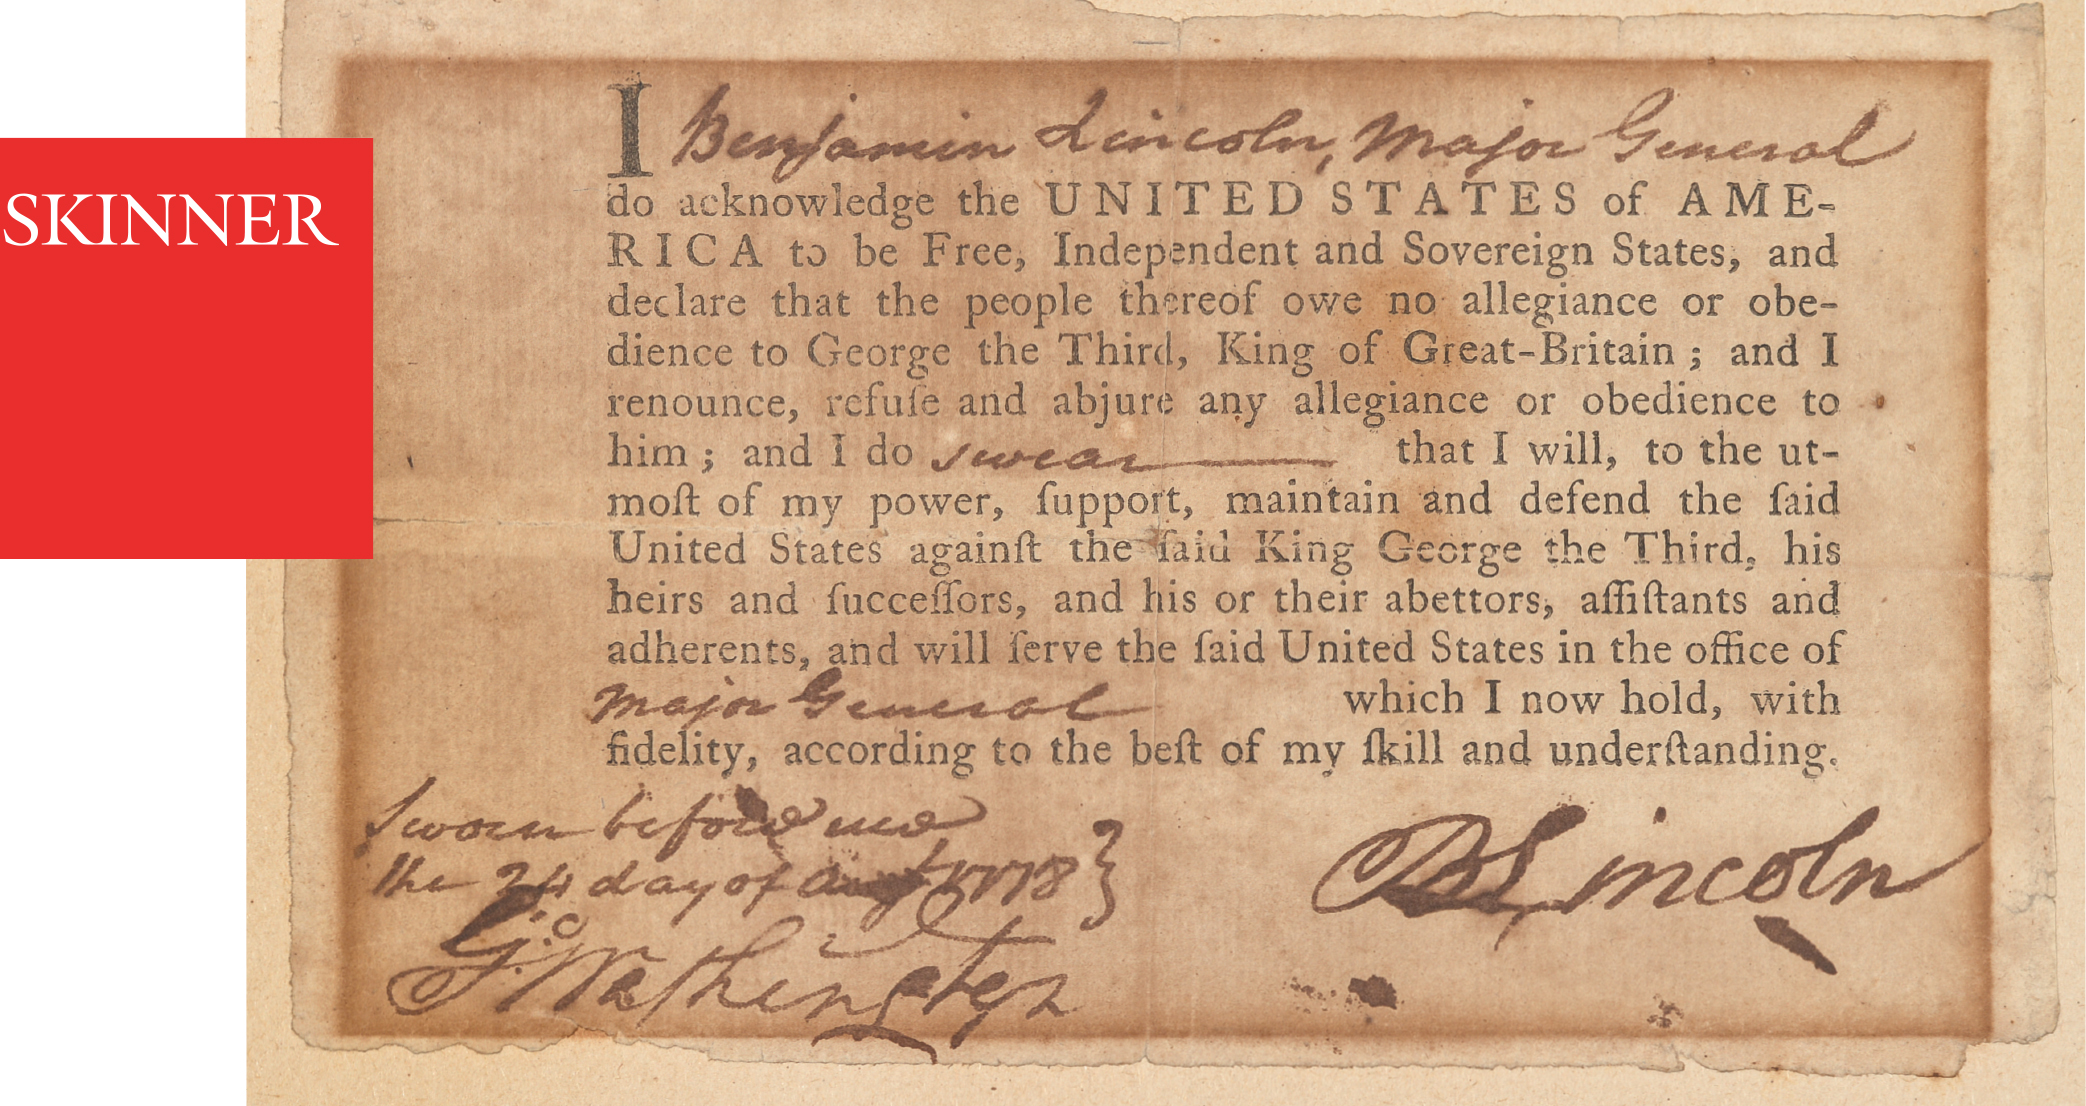 SKINNER
I Benjamin Lincoln, Major General
do acknowledge the UNITED STATES of AME-
RICA to be Free, Independent and Sovereign States, and
declare that the people thereof owe no allegiance or obe-
dience to George the Third, King of Great-Britain ; and I
renounce, refuſe and abjure any allegiance or obedience to
him ; and I do swear that I will, to the ut-
moſt of my power, ſupport, maintain and defend the ſaid
United States againſt the ſaid King George the Third, his
heirs and ſucceſſors, and his or their abettors, aſſiſtants and
adherents, and will ſerve the ſaid United States in the office of
Major General which I now hold, with
fidelity, according to the beſt of my ſkill and underſtanding.
Sworn before me
the 24 day of Augt 1778 }
B Lincoln
Go: Washington